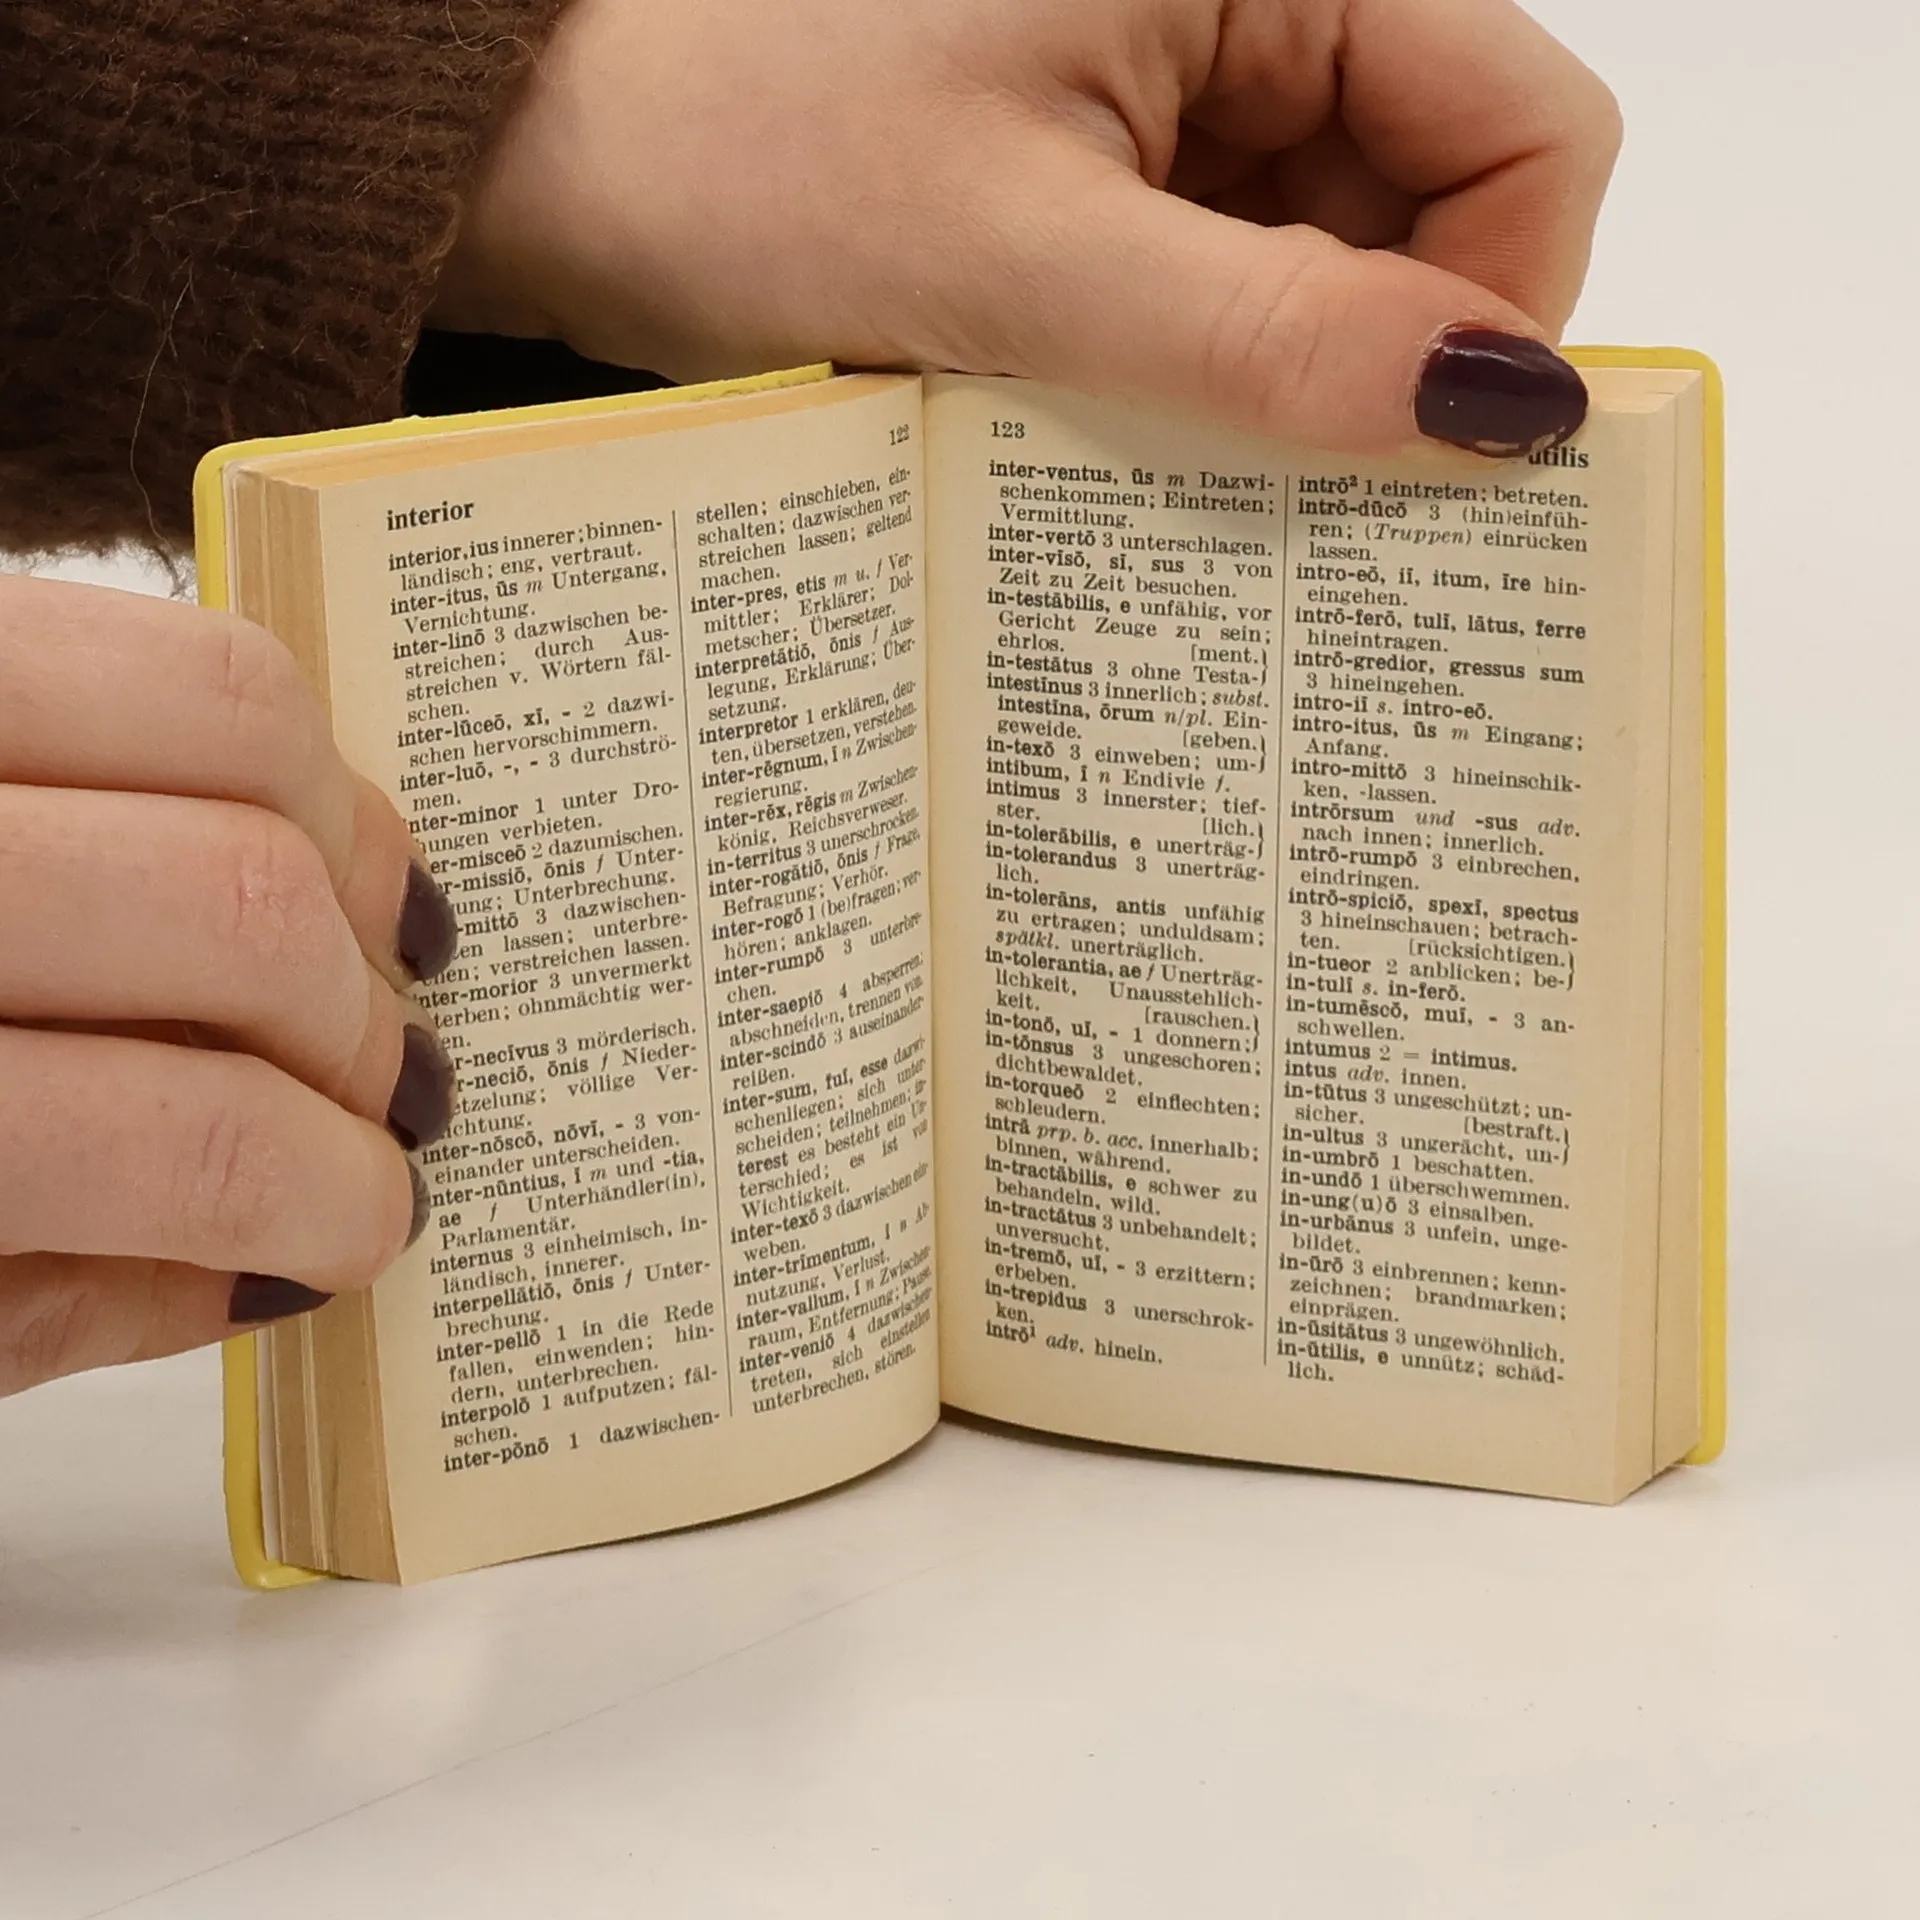 122
interior
interior, ius innerer; binnen-
ländisch; eng, vertraut.
inter-itus, ūs m Untergang,
Vernichtung.
inter-linō 3 dazwischen be-
streichen; durch Aus-
streichen v. Wörtern fäl-
schen.
inter-lūceō, xī, - 2 dazwi-
schen hervorschimmern.
inter-luō, -, - 3 durchströ-
men.
nter-minor 1 unter Dro-
hungen verbieten.
er-misceō 2 dazumischen.
r-missiō, ōnis f Unter-
ung; Unterbrechung.
-mittō 3 dazwischen-
en lassen; unterbre-
chen; verstreichen lassen.
nter-morior 3 unvermerkt
terben; ohnmächtig wer-
en.
r-necīvus 3 mörderisch.
r-neciō, ōnis f Nieder-
etzelung; völlige Ver-
ichtung.
inter-nōscō, nōvī, - 3 von-
einander unterscheiden.
nter-nūntius, ī m und -tia,
ae f Unterhändler(in),
Parlamentär.
internus 3 einheimisch, in-
ländisch, innerer.
interpellātiō, ōnis f Unter-
brechung.
inter-pellō 1 in die Rede
fallen, einwenden; hin-
dern, unterbrechen.
interpolō 1 aufputzen; fäl-
schen.
inter-pōnō 1 dazwischen-
stellen; einschieben, ein-
schalten; dazwischen ver-
streichen lassen; geltend
machen.
inter-pres, etis m u. f Ver-
mittler; Erklärer; Dol-
metscher; Übersetzer.
interpretātiō, ōnis f Aus-
legung, Erklärung; Über-
setzung.
interpretor 1 erklären, deu-
ten, übersetzen, verstehen.
inter-rēgnum, ī n Zwischen-
regierung.
inter-rēx, rēgis m Zwischen-
könig, Reichsverweser.
in-territus 3 unerschrocken.
inter-rogātiō, ōnis f Frage,
Befragung; Verhör.
inter-rogō 1 (be)fragen; ver-
hören; anklagen.
inter-rumpō 3 unterbre-
chen.
inter-saepiō 4 absperren;
abschneiden, trennen von
inter-scindō 3 auseinander-
reißen.
inter-sum, fuī, esse dazwi-
schenliegen; sich unter-
scheiden; teilnehmen; in-
terest es besteht ein Un-
terschied; es ist von
Wichtigkeit.
inter-texō 3 dazwischen ein-
weben.
inter-trīmentum, ī n Ab-
nutzung, Verlust.
inter-vallum, ī n Zwischen-
raum, Entfernung; Pause.
inter-veniō 4 dazwischen-
treten, sich einstellen
unterbrechen, stören.
123
utilis
inter-ventus, ūs m Dazwi-
schenkommen; Eintreten;
Vermittlung.
inter-vertō 3 unterschlagen.
inter-vīsō, sī, sus 3 von
Zeit zu Zeit besuchen.
in-testābilis, e unfähig, vor
Gericht Zeuge zu sein;
ehrlos. [ment.]
in-testātus 3 ohne Testa-}
intestīnus 3 innerlich; subst.
intestīna, ōrum n/pl. Ein-
geweide. [geben.]
in-texō 3 einweben; um-}
intibum, ī n Endivie f.
intimus 3 innerster; tief-
ster. [lich.]
in-tolerābilis, e unerträg-}
in-tolerandus 3 unerträg-
lich.
in-tolerāns, antis unfähig
zu ertragen; unduldsam;
spätkl. unerträglich.
in-tolerantia, ae f Unerträg-
lichkeit, Unausstehlich-
keit. [rauschen.]
in-tonō, uī, - 1 donnern;}
in-tōnsus 3 ungeschoren;
dichtbewaldet.
in-torqueō 2 einflechten;
schleudern.
intrā prp. b. acc. innerhalb;
binnen, während.
in-tractābilis, e schwer zu
behandeln, wild.
in-tractātus 3 unbehandelt;
unversucht.
in-tremō, uī, - 3 erzittern;
erbeben.
in-trepidus 3 unerschrok-
ken.
intrō¹ adv. hinein.
intrō² 1 eintreten; betreten.
intrō-dūcō 3 (hin)einfüh-
ren; (Truppen) einrücken
lassen.
intro-eō, iī, itum, īre hin-
eingehen.
intrō-ferō, tulī, lātus, ferre
hineintragen.
intrō-gredior, gressus sum
3 hineingehen.
intro-iī s. intro-eō.
intro-itus, ūs m Eingang;
Anfang.
intro-mittō 3 hineinschik-
ken, -lassen.
intrōrsum und -sus adv.
nach innen; innerlich.
intrō-rumpō 3 einbrechen,
eindringen.
intrō-spiciō, spexī, spectus
3 hineinschauen; betrach-
ten. [rücksichtigen.]
in-tueor 2 anblicken; be-}
in-tulī s. in-ferō.
in-tumēscō, muī, - 3 an-
schwellen.
intumus 2 = intimus.
intus adv. innen.
in-tūtus 3 ungeschützt; un-
sicher. [bestraft.]
in-ultus 3 ungerächt, un-}
in-umbrō 1 beschatten.
in-undō 1 überschwemmen.
in-ung(u)ō 3 einsalben.
in-urbānus 3 unfein, unge-
bildet.
in-ūrō 3 einbrennen; kenn-
zeichnen; brandmarken;
einprägen.
in-ūsitātus 3 ungewöhnlich.
in-ūtilis, e unnütz; schäd-
lich.